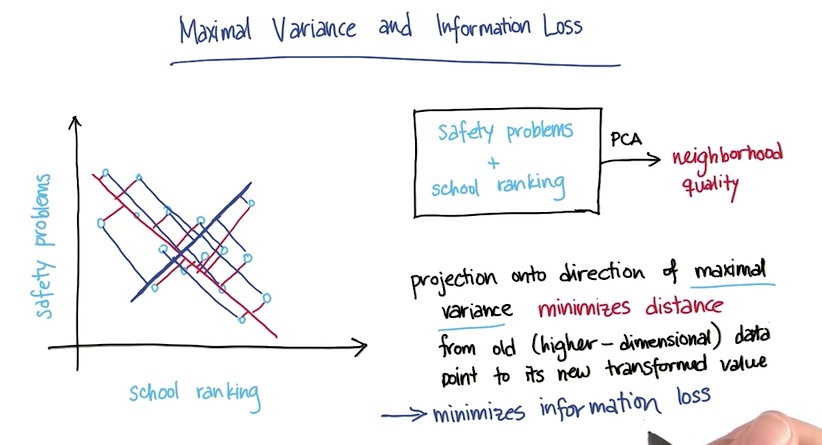 Maximal Variance and Information Loss
safety problems
school ranking
safety problems
+
school ranking
PCA
neighborhood
quality
projection onto direction of maximal
variance minimizes distance
from old (higher-dimensional) data
point to its new transformed value
→ minimizes information loss